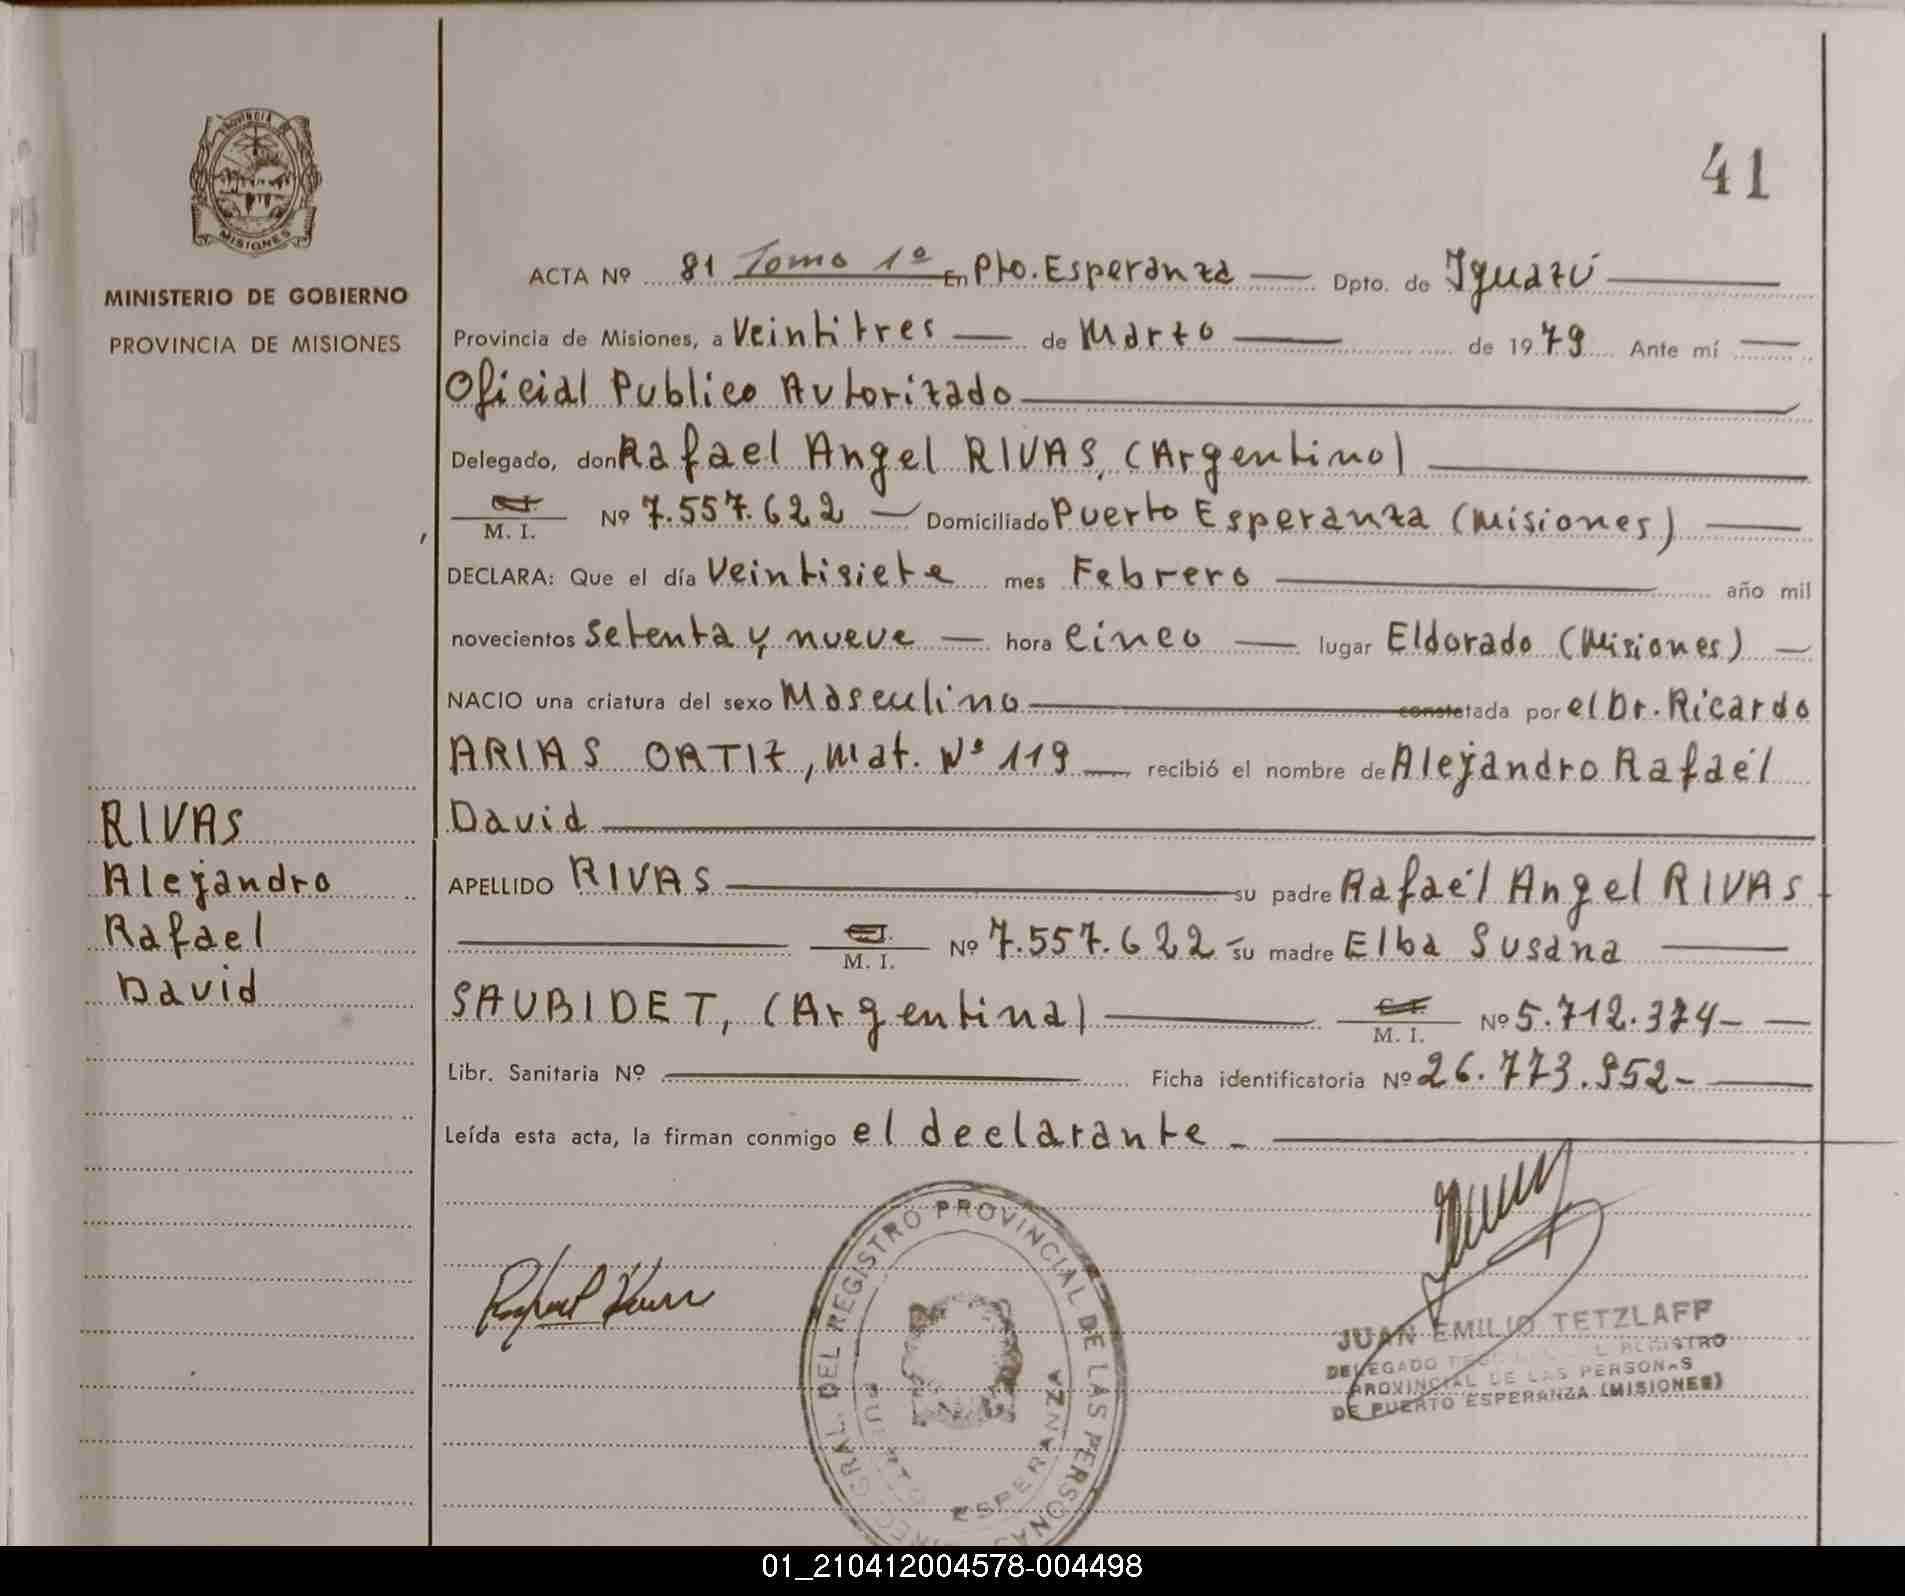 PROVINCIA DE
MISIONES
MINISTERIO DE GOBIERNO
PROVINCIA DE MISIONES
41
ACTA Nº 81 Tomo 1º En Pto. Esperanza Dpto. de Iguazú
Provincia de Misiones, a Veintitres de Marzo de 1979 Ante mí
Oficial Publico Autorizado
Delegado, don Rafael Angel RIVAS, (Argentino)
M. I. Nº 7.557.622 Domiciliado Puerto Esperanza (Misiones)
DECLARA: Que el día Veintisiete mes Febrero año mil
novecientos setenta y nueve hora cinco lugar Eldorado (Misiones)
NACIO una criatura del sexo Masculino constatada por el Dr. Ricardo
ARIAS ORTIZ, Mat. Nº 119 recibió el nombre de Alejandro Rafaél
David
APELLIDO RIVAS su padre Rafaél Angel RIVAS
M. I. Nº 7.557.622 su madre Elba Susana
SAUBIDET, (Argentina) M. I. Nº 5.712.374
Libr. Sanitaria Nº Ficha identificatoria Nº 26.773.952
Leída esta acta, la firman conmigo el declarante
RIVAS
Alejandro
Rafael
David
Rafael Rivas
DEL REGISTRO PROVINCIAL DE LAS PERSONAS
ESPERANZA
JUAN EMILIO TETZLAFF
DELEGADO REGISTRO
PROVINCIAL DE LAS PERSONAS
DE PUERTO ESPERANZA (MISIONES)
01_210412004578-004498